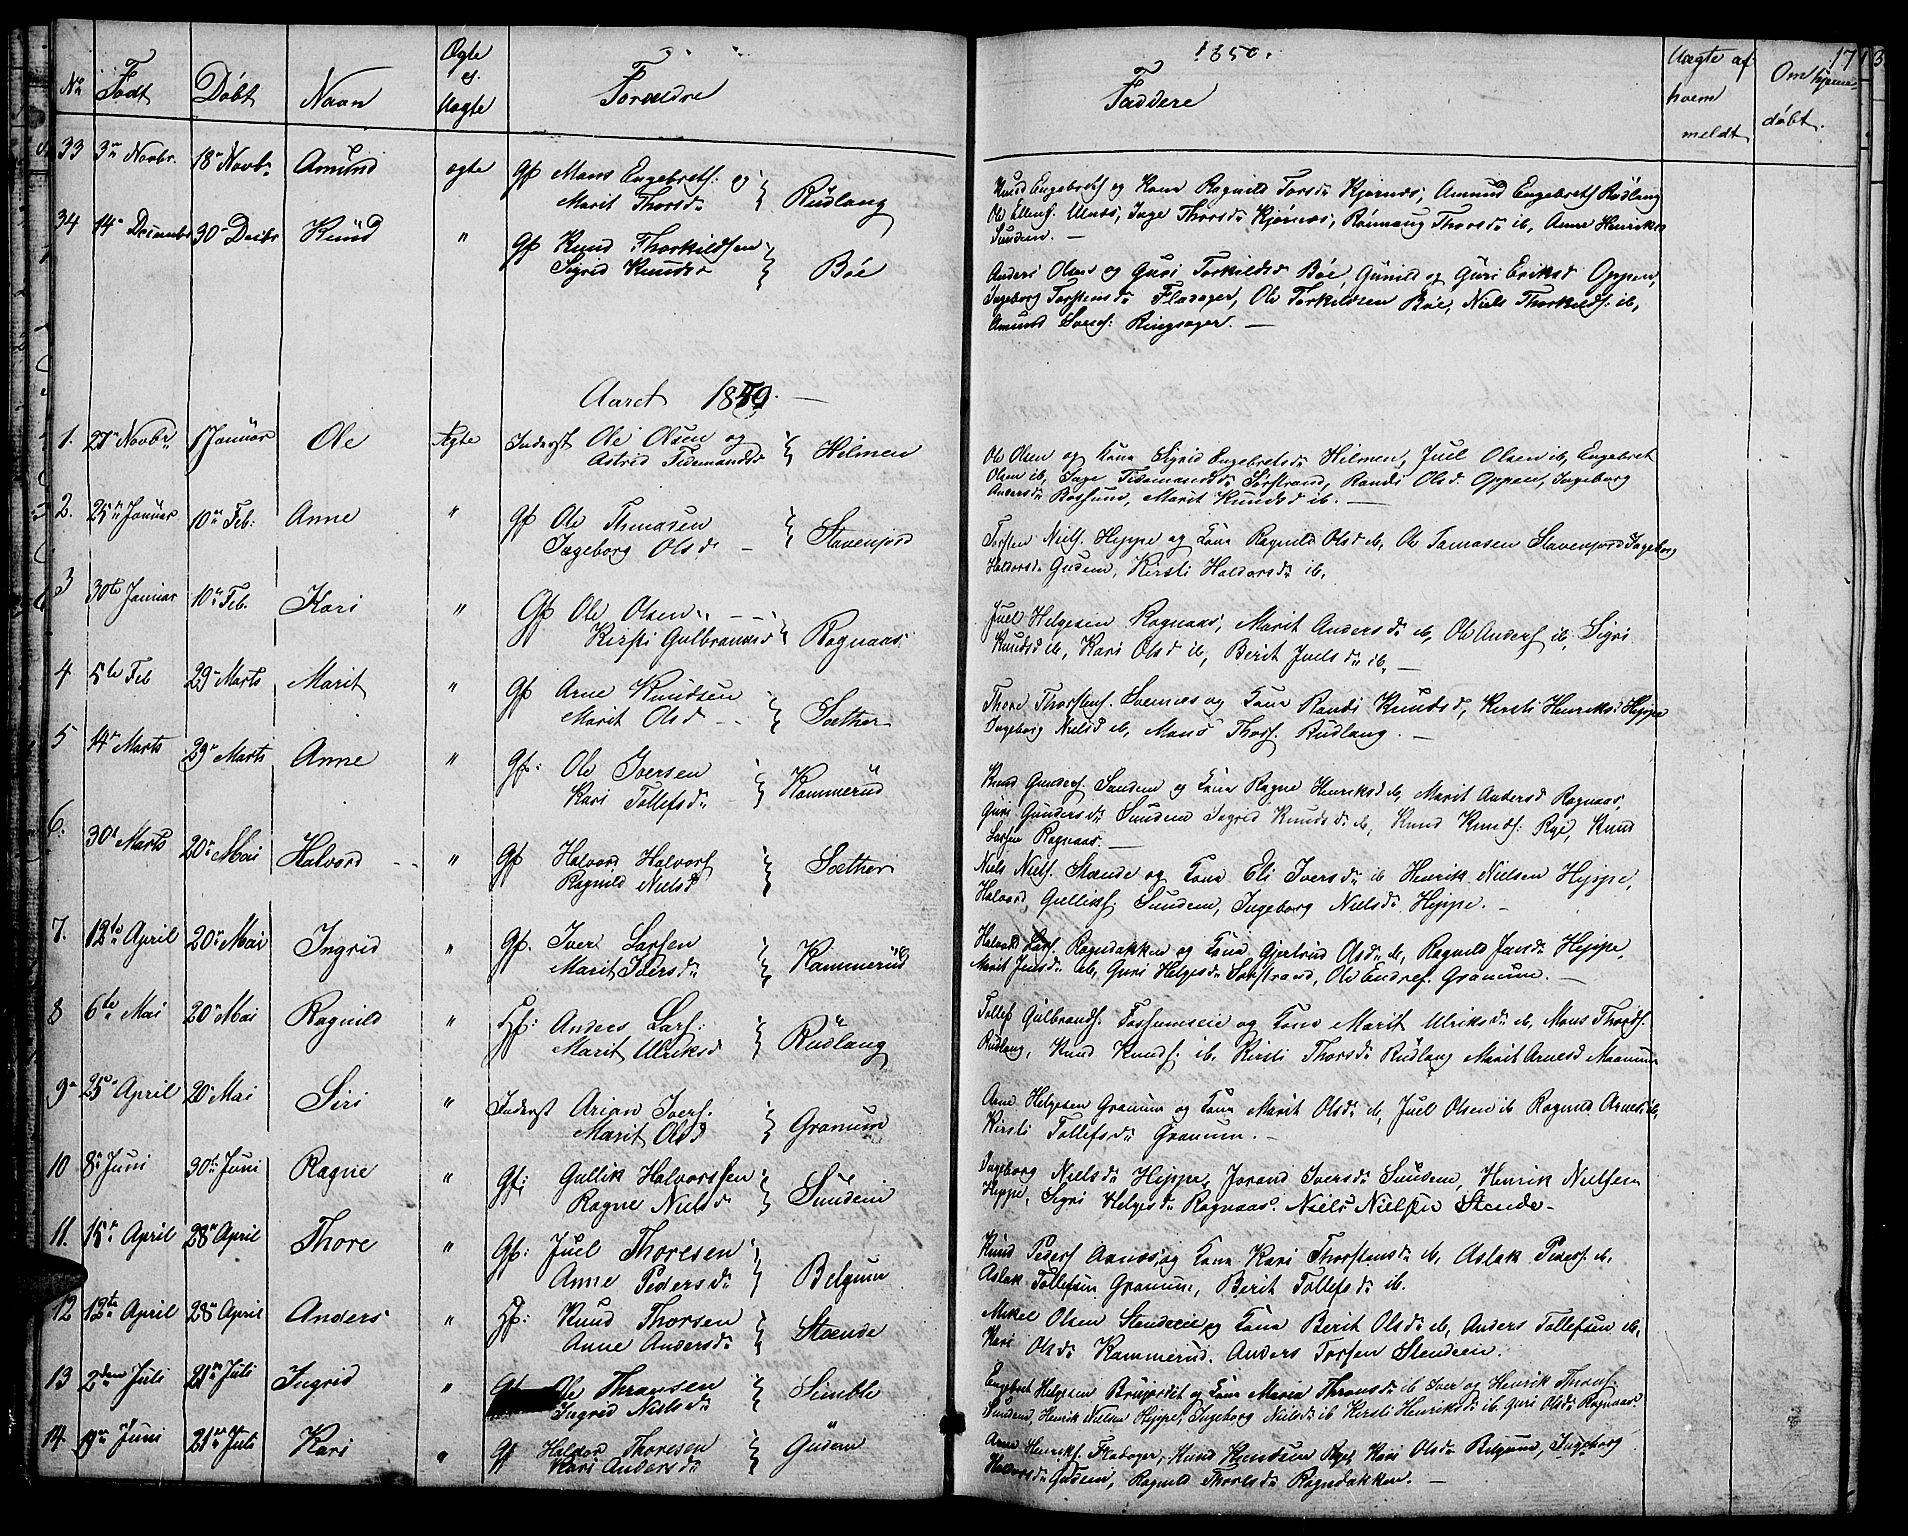 1850.
171
No Født Døbt Navn Ægte el. Uægte Forældre Faddere Uægte af hvem meldt Om hjemme døbt.
33 3de Novbr. 18de Novbr Amund ægte Gf Mons Engebretf: og Marit Thorsd: Rudlang
Knud Engebretf og Kone Ragnild Torsd: Kjørnes, Amund Engebretf Rudlang
Ole Ellenf. Ulnes, Inge Thorsd: Kjørnes, Rønnaug Thorsd: ib, Anne Henriksd
Sundem. —
34 14de Decembr 30 Decbr Knud " Gf Knud Thorkildsen Sigrid Knudsd Bøe
Anders Olsen og Guri Torkildsd Bøe, Gunild og Guri Eriksd Oppen,
Ingeborg Torstensd: Fladager, Ole Torkildsen Bøe, Niels Thorkildf: ib,
Amund Svenf: Ringsager. —
Aaret 1850. —
1. 27de Novbr. 1 Januar Ole Ægte Inderst Ole Olsen og Astrid Tidemandsd Hilmen
Ole Olsen og Kone Sigrid Engebretsd: Hilmen, Juel Olsen ib, Engebret
Olsen ib, Inge Tidemandsd: Sørstrand, Randi Olsd. Oppen, Ingeborg
Andersd: Fossum, Marit Knudsd ib. —
2. 25de Januar 10de Feb: Anne " Gf Ole Thomasen Ingeborg Olsd — Stavenjord
Torsten Nielf. Hippe og Kone Ragnild Olsd ib, Ole Tomasen Stavenjord Ingeborg
Haldorsd: Gudem, Kirsti Haldorsd: ib,
3 30te Januar 10de Feb. Kari " Gf Ole Olsen Kirsti Gulbrandsd Rognaas.
Juel Helgesen Rognaas, Marit Andersd: ib, Ole Anderf ib, Sigri
Knudsd ib, Kari Olsd ib, Berit Juelsd: ib, —
4 5te Feb 29 Marts Marit " Gf Arne Knudsen Marit Olsd Sæther
Thore Thorstenf. Svennes og Kone Randi Knudsd, Kirsti Henriksd Hippe
Ingeborg Nielsd ib, Mons Thorf. Rudlang. —
5 14de Marts 29de Marts Anne " Gf: Ole Iversen Kari Tollefsd: Kammerud
Knud Gunderf. Sundem og Kone Ragne Henriksd ib, Marit Andersd Rognaas,
Guri Gundersd: Sundem Sigrid Knudsd: ib, Knud Knudf: Rye, Knud
Larsen Rognaas. —
6. 30te Marts 20de Mai Halvord " Gf Halvord Halvorf Ragnild Nielsd Sæther
Niels Nielf. Stænde og Kone Eli Iversd: ib Henrik Nielsen Hippe,
Halvord Gullikf. Sundem, Ingeborg Nielsd: Hippe. —
7. 12te April 20de Mai Ingrid " Gf. Iver Larsen Marit Iversd: Kammerud
Halvord Larf. Rogndokken og Kone Gjertrud Olsd: ib, Ragnild Jensd: Hippe,
Marit Jensd: ib, Guri Helgesd: Sørstrand, Ole Endref. Granum. —
8 6te Mai 20de Mai Ragnild " Hf: Anders Larf: Marit Ulriksd Rudlang
Tollef Gulbrandf. Fossumseie og Kone Marit Ulriksd: ib, Mons Thorsf.
Rudlang, Knud Knudf: ib. Kirsti Thorsd: Rudlang Marit Arnesd Moanum
9 25de April 20 Mai Siri " Inderst Arian Iverf. Marit Olsd Granum
Arne Helgesen Granum og Kone Marit Olsd: ib, Juel Olsen ib Ragnild Arnesd: ib,
Kirsti Tollefsd: Granum. —
10 8de Juni 30te Juni Ragne " Gf: Gullik Halvorssen Ragne Nielsd Sundem
Ingeborg Nielsd: Hippe, Jorand Iversd: Sundem, Henrik Nielsen
Hippe, Sigri Helgesd: Rognaas. Niels Nielsen Stende —
11. 15de April 28de April Thore " Gf: Juel Thoresen Anne Pedersd: Belgum
Knud Pederf Aanæs, og Kone Kari Thorstensd: ib, Aslak Pederf. ib.
Aslak Tollefsen Granum, Berit Tollefsd: ib.
12 13te April 28de April Anders " Hf: Knud Thorsen Anne Andersd: Stænde
Mikel Olsen Stendeeie og Kone Berit Olsd: ib, Anders Tollefsen ib,
Kari Olsd: Kammerud. Anders Torsen Stendeen.
13 2den Juli 21de Juli Ingrid " Gf Ole Thronsen Ingrid Nielsd: Simble
Engebret Helgesen Brujordet og Kone Maria Thronsd: ib Iver og Henrik Thronf.
Sundem, Henrik Nielsen Hippe, Ingeborg Nielsd: ib Kirsti Henriksd: ib. Guri Olsd: Rognaas.
14. 9de Juni 21de Juli Kari " Gf Haldor Thoresen Kari Andersd: Gudem
Arne Henrikf. Fladager, Knud Knudsen Rye, Kari Olsd: Belgum, Ingeborg
Haldorsd: Gudem, Ragnild Thoresd: Rogndokken. —